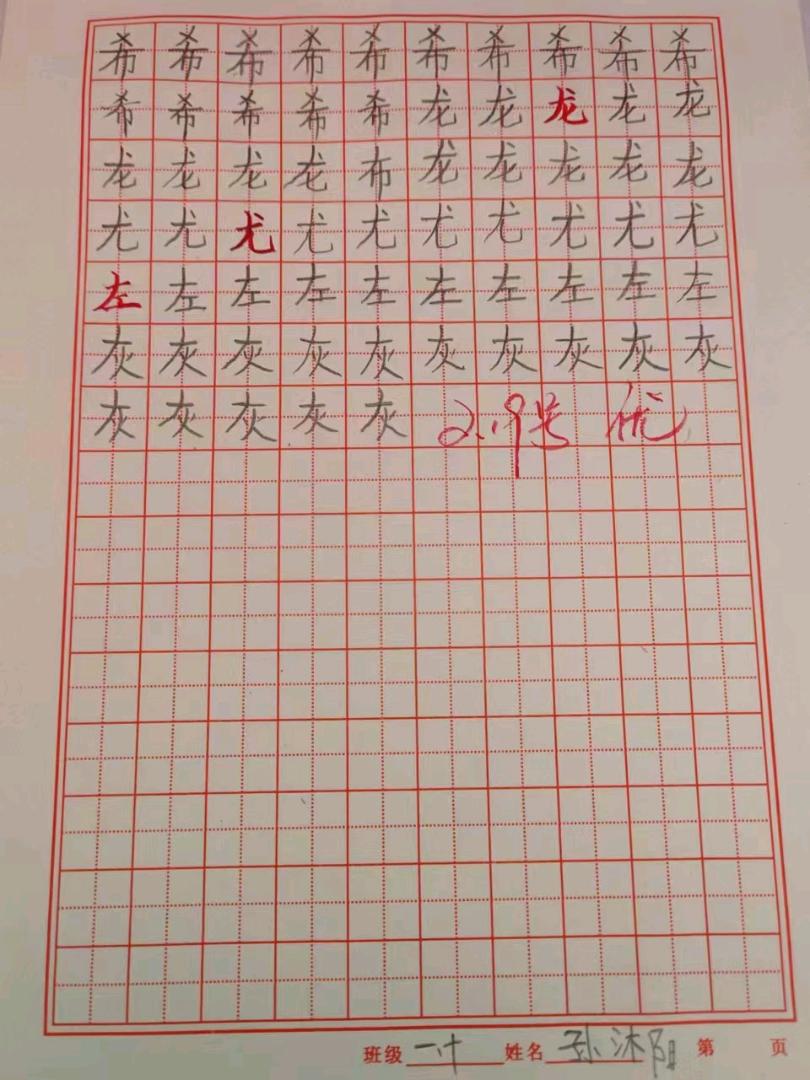 希希希希希希希希希希
希希希希希龙龙龙龙龙
龙龙龙龙布龙龙龙龙龙
尤尤尤尤尤尤尤尤尤尤
左左左左左左左左左左
灰灰灰灰灰灰灰灰灰灰
灰灰灰灰灰 2.19号 优
班级 一十 姓名 孙沐阳 第 页